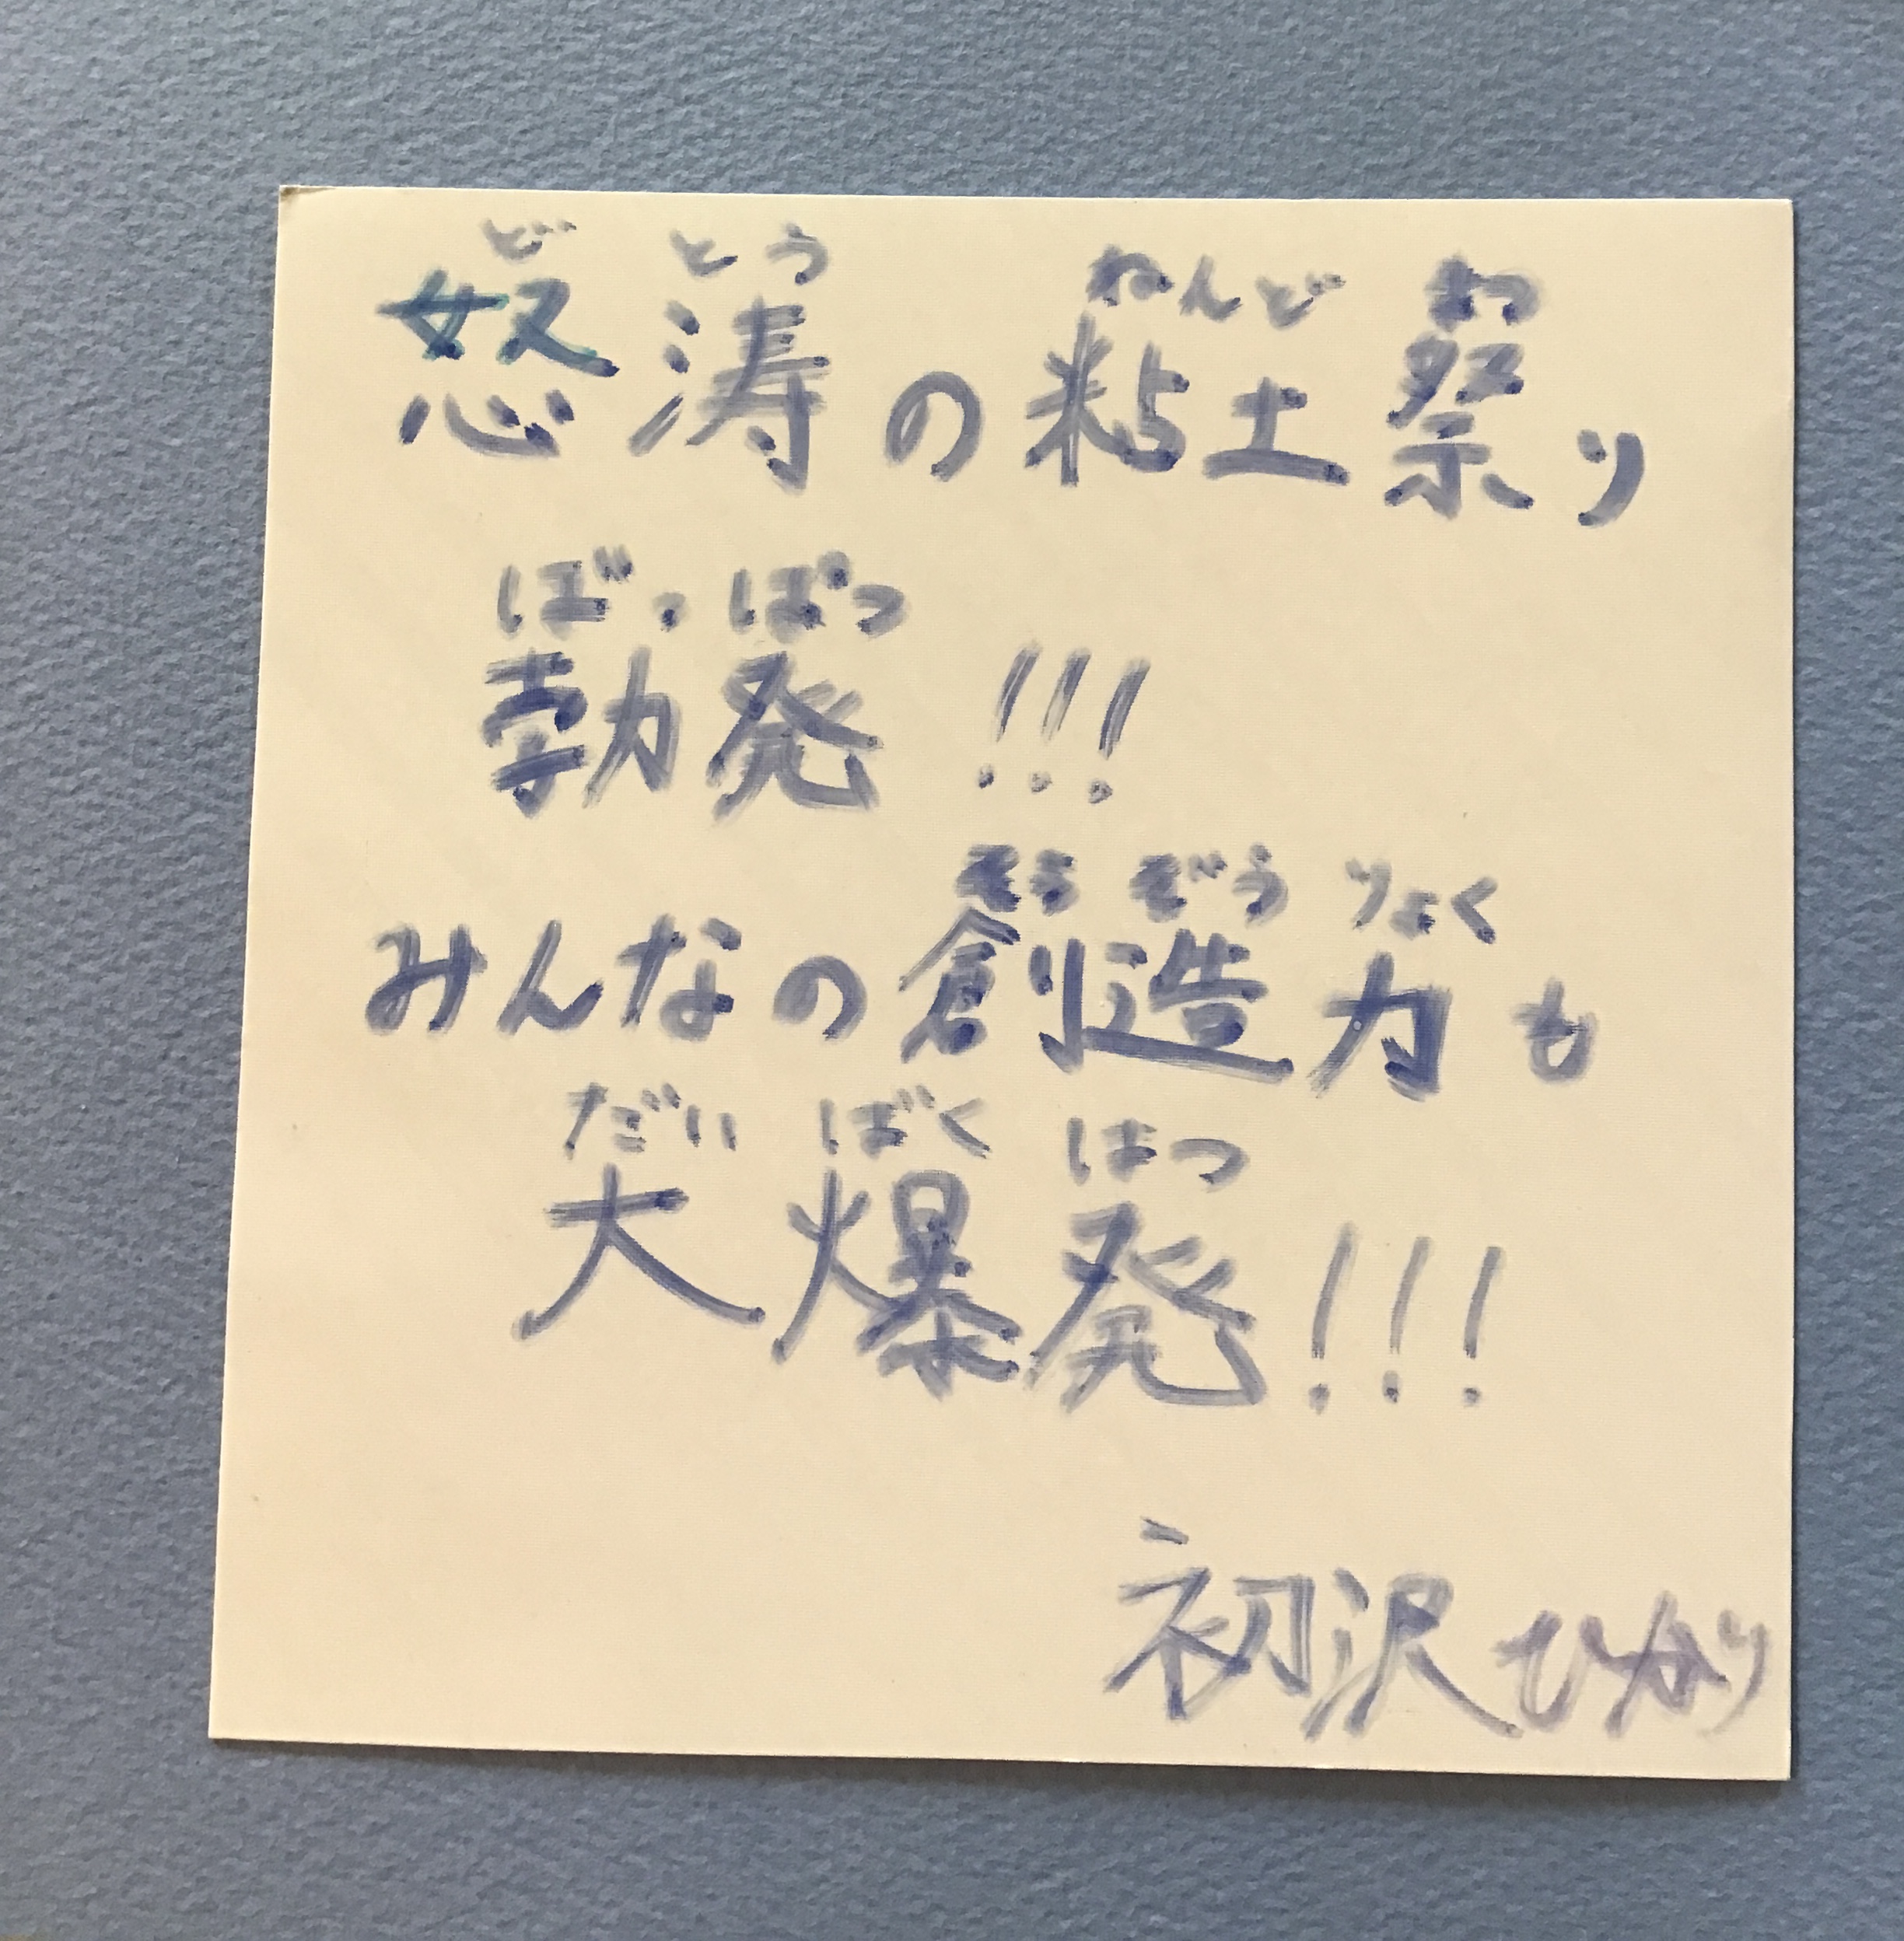 ど とう ねんど まつ
怒涛の粘土祭り
ぼっ ぱつ
勃発!!!
そう ぞう りょく
みんなの創造力も
だい ばく はつ
大爆発!!!
初沢ひかり